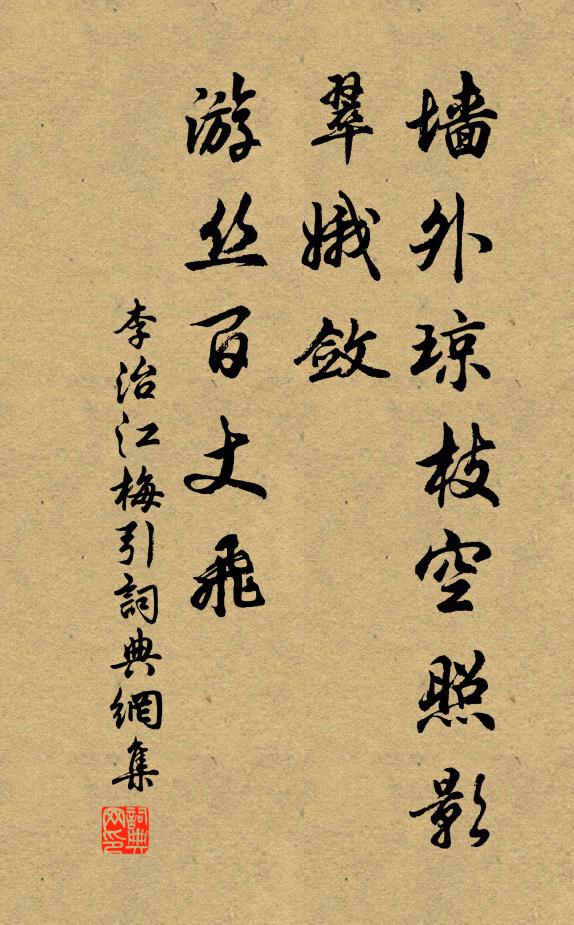 墙外琼枝空照影
翠娥敛
游丝百丈飞
李治江梅引詞典網集
詞典网印